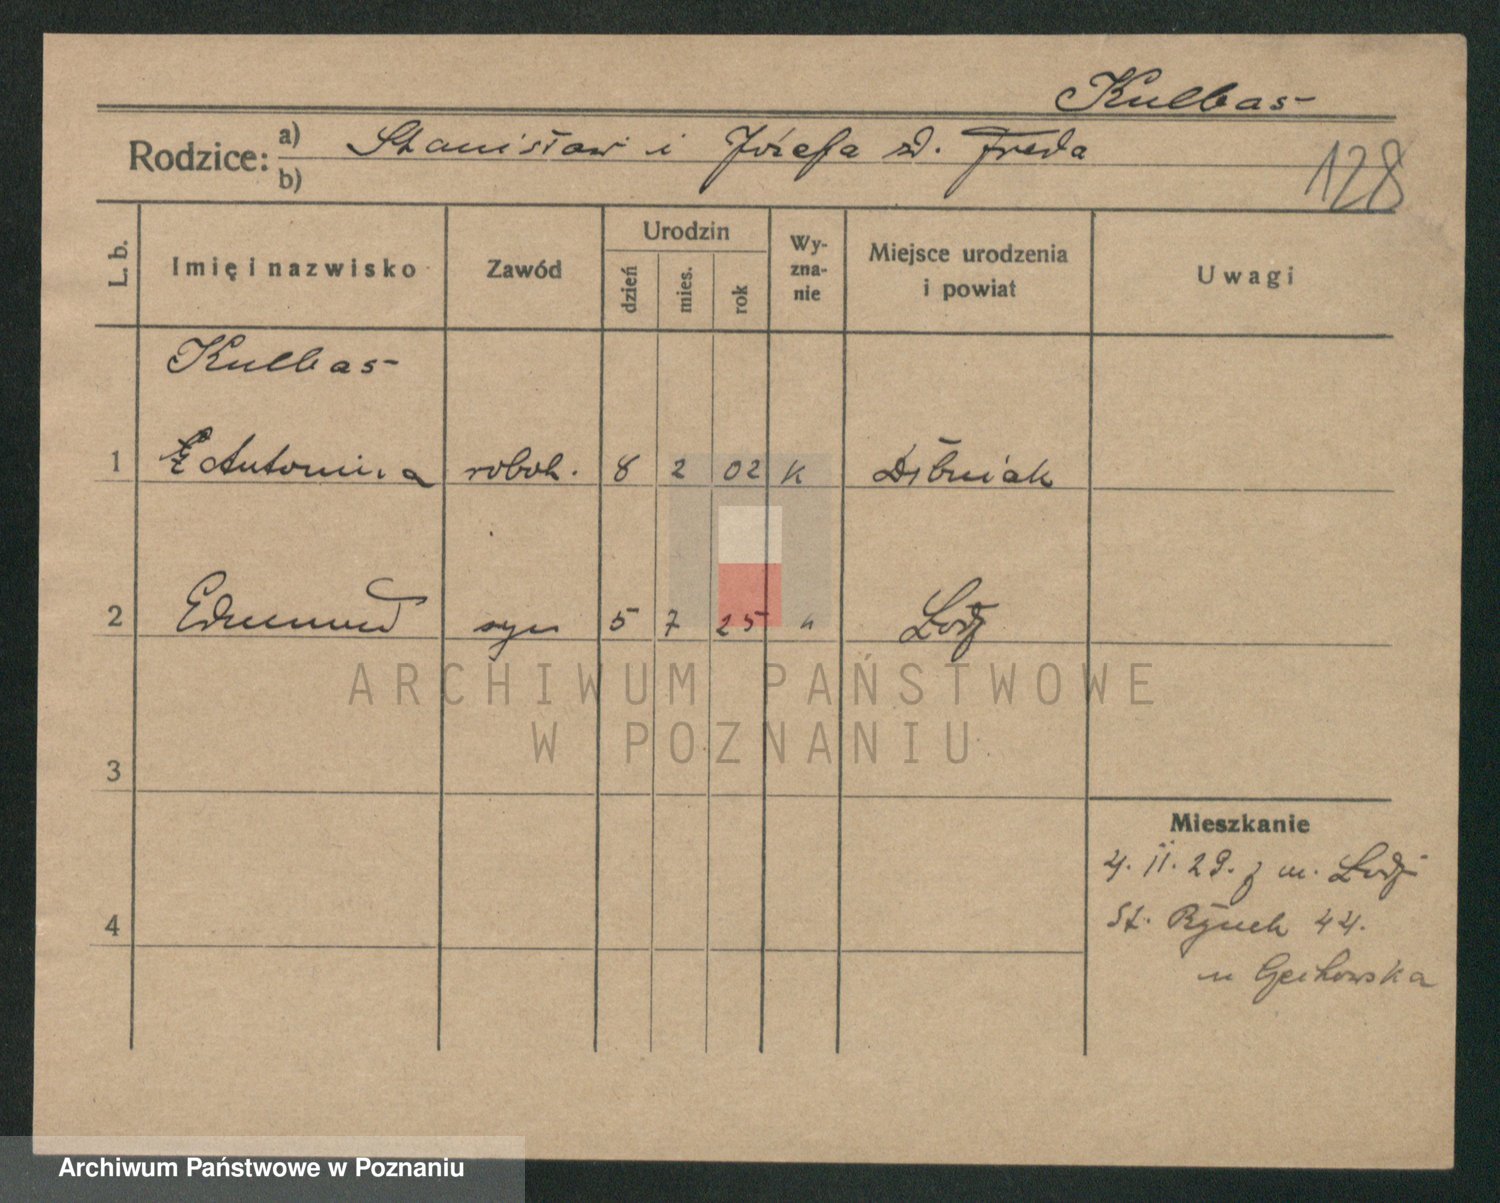 Kulbas
Rodzice: a) Stanisław i Józefa zd. Freda
b)
128
L. b.
Imię i nazwisko
Zawód
Urodzin
dzień
mies.
rok
Wy-
zna-
nie
Miejsce urodzenia
i powiat
Uwagi
Kulbas
1 Antonina robotn. 8 2 02 K
2 Edmund syn 5 7 25 " Łódź
3
4
Mieszkanie
4. II. 29. z m. Łodzi
St. Rynek 44.
u
ARCHIWUM PAŃSTWOWE
W POZNANIU
Archiwum Państwowe w Poznaniu